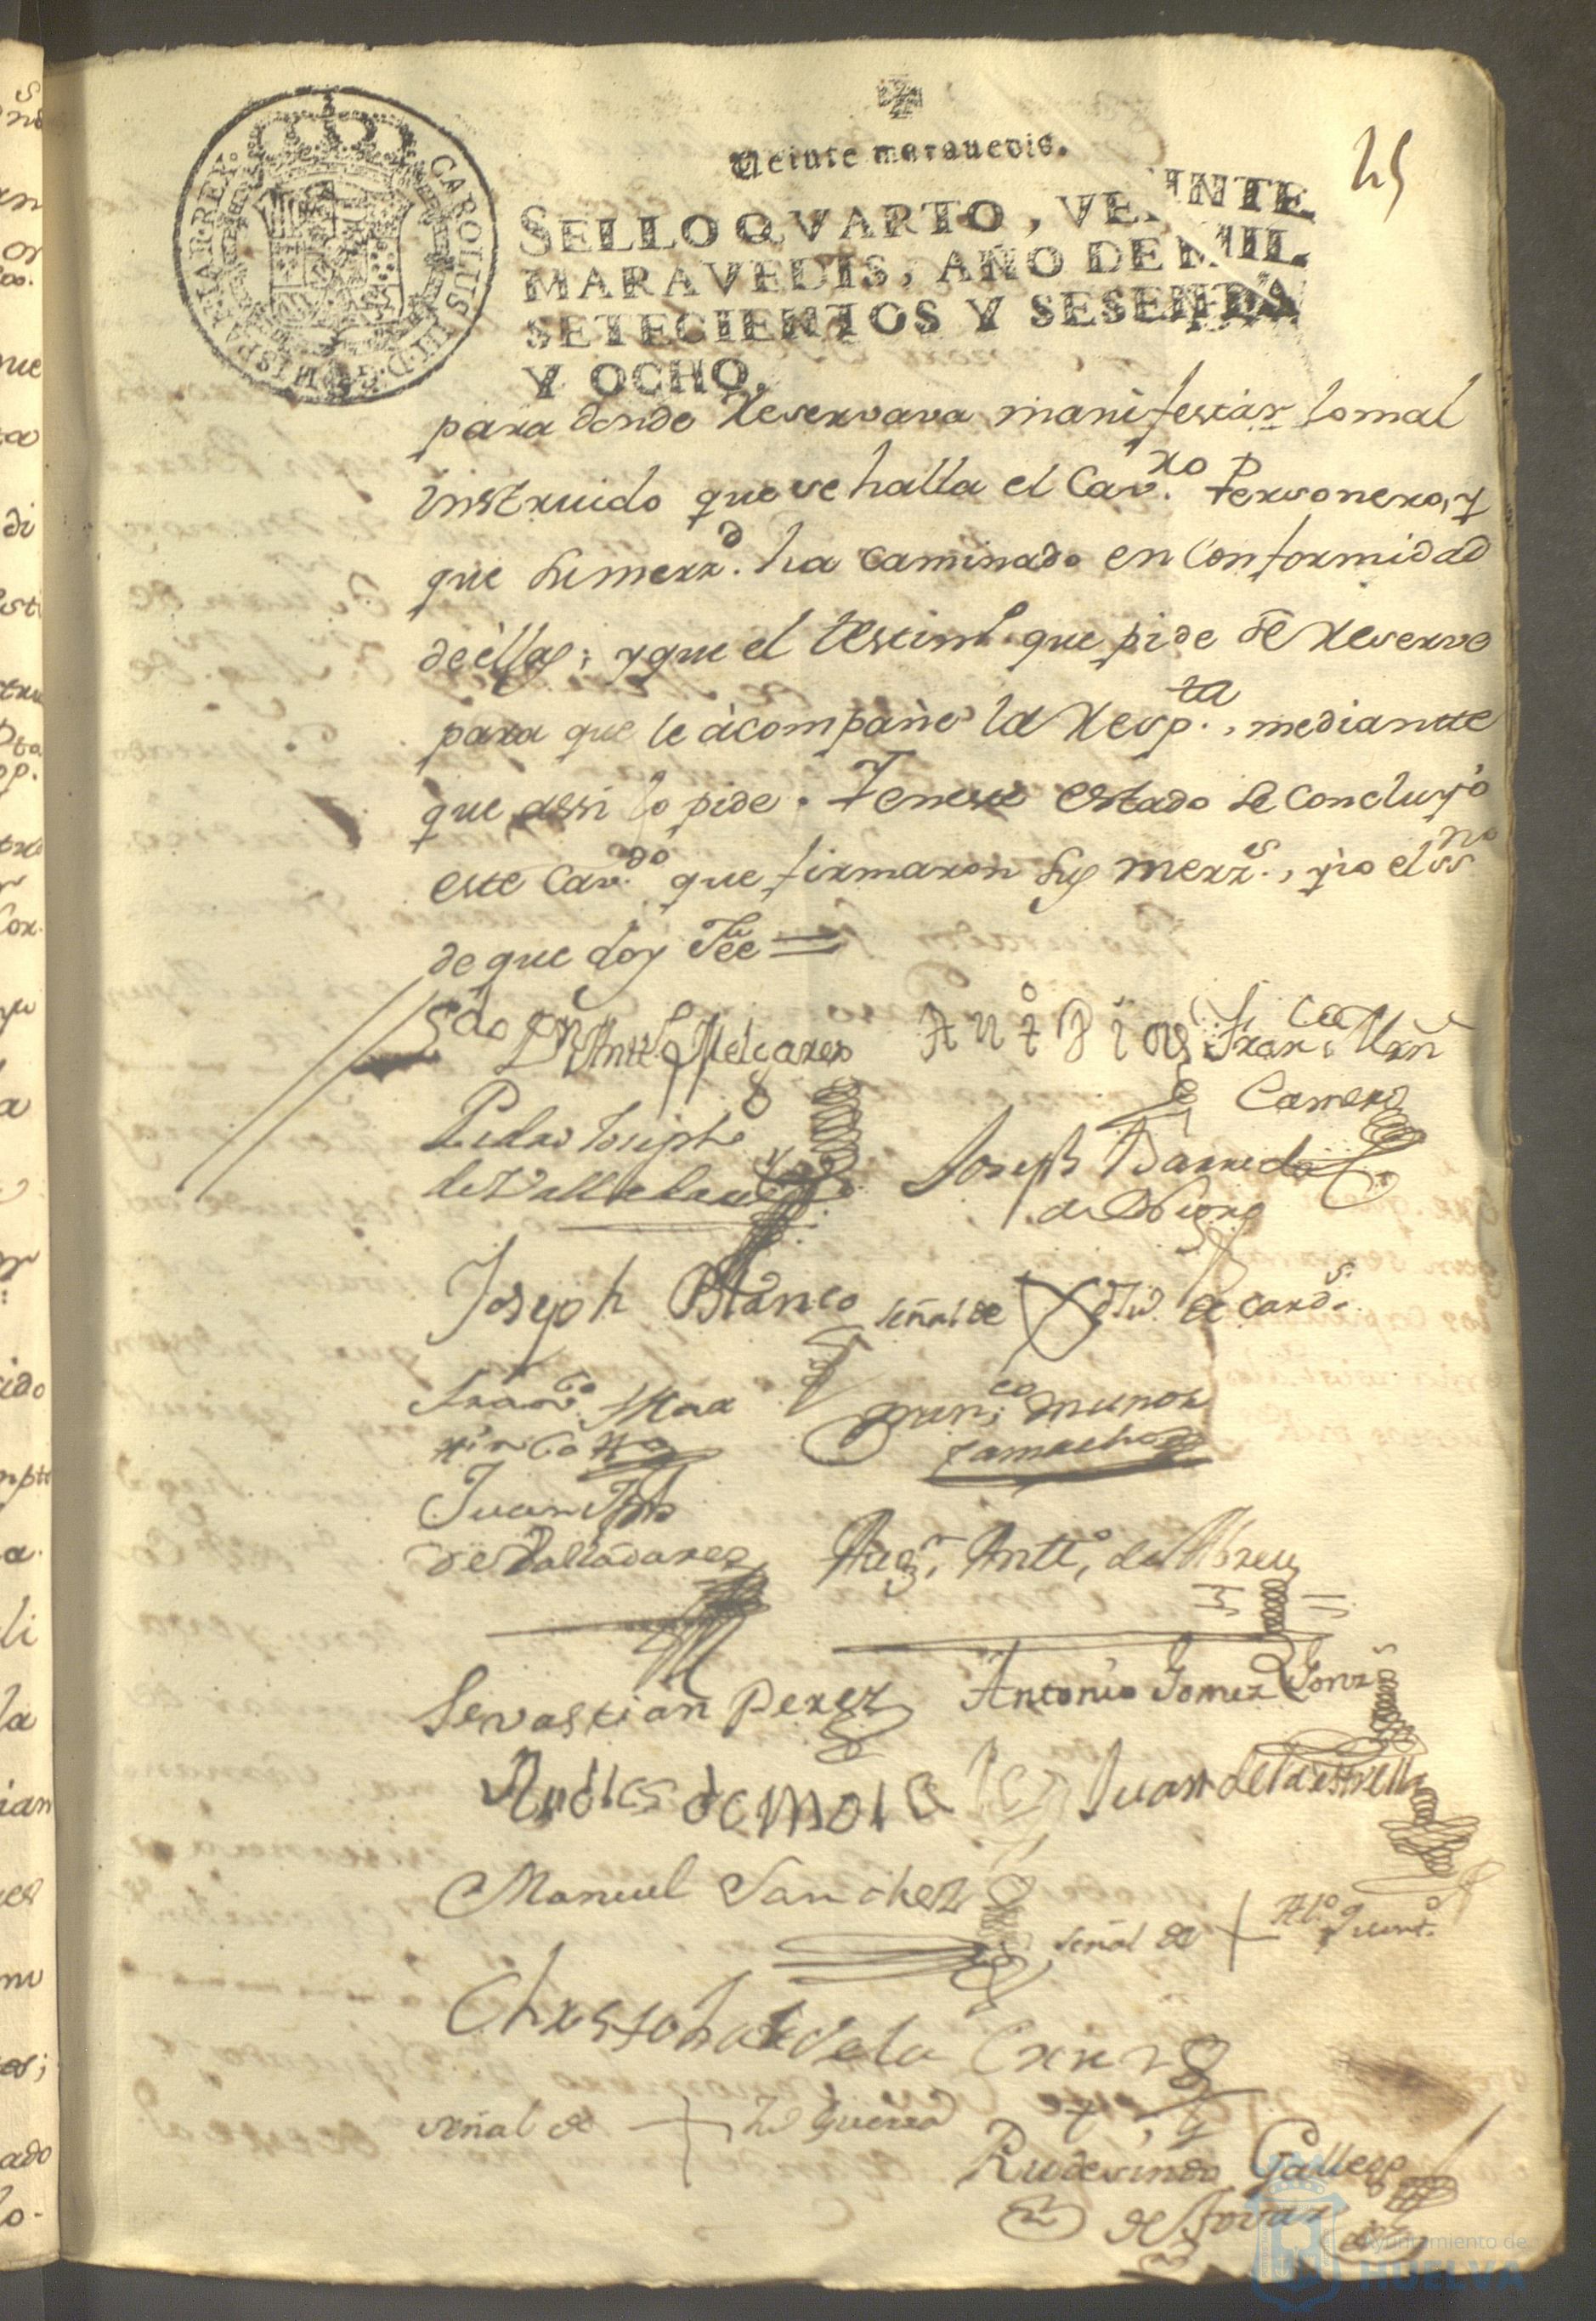 CAROLUS III D G HISPANIAR REX
Veinte marauedis.
25
SELLO QVARTO, VEINTE
MARAVEDIS, AÑO DE MIL
SETECIENTOS Y SESENTA
Y OCHO.
para donde Reservava manifestar lo mal
instruido que se halla el Cav.ro Personero, y
que su merz.d ha caminado en Conformidad
de éllas; y que el testim.o que pide se Reserve
para que le àcompañe la Resp.ta, mediantte
que assi lo pide. Y en este estado se concluyò
este Cav.do que firmaron sus merz.s, yo el ss.no
de que doy Fee =
Antt.o Melgarejo
Ant.o Rios
Fran.co
Camero
Pedro Joseph
Joseph Barreda
Joseph Blanco
señal de
de Card.s
Fran.co Mar
tin
Fran.co Munoz
Camacho
Juan Jph
de Valladares
Aug.n Antt.o de Abreu
Sevastian Perez
Antonio Gomez Gonz.s
Andres de mora
Juan de la estrella
Manuel Sanchez
señal de
Al.o
Christobal de la Cruz
señal de
Guerra
Rudesindo Gallego
de Tovar
Ayuntamiento de
HUELVA